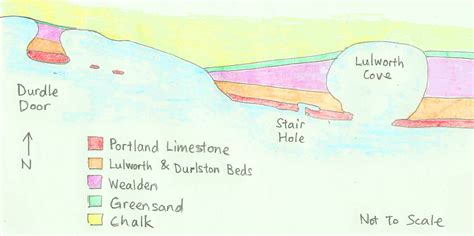 Lulworth
Cove
Durdle
Door
Stair
Hole
N
Portland Limestone
Lulworth & Durlston Beds
Wealden
Greensand
Chalk
Not To Scale